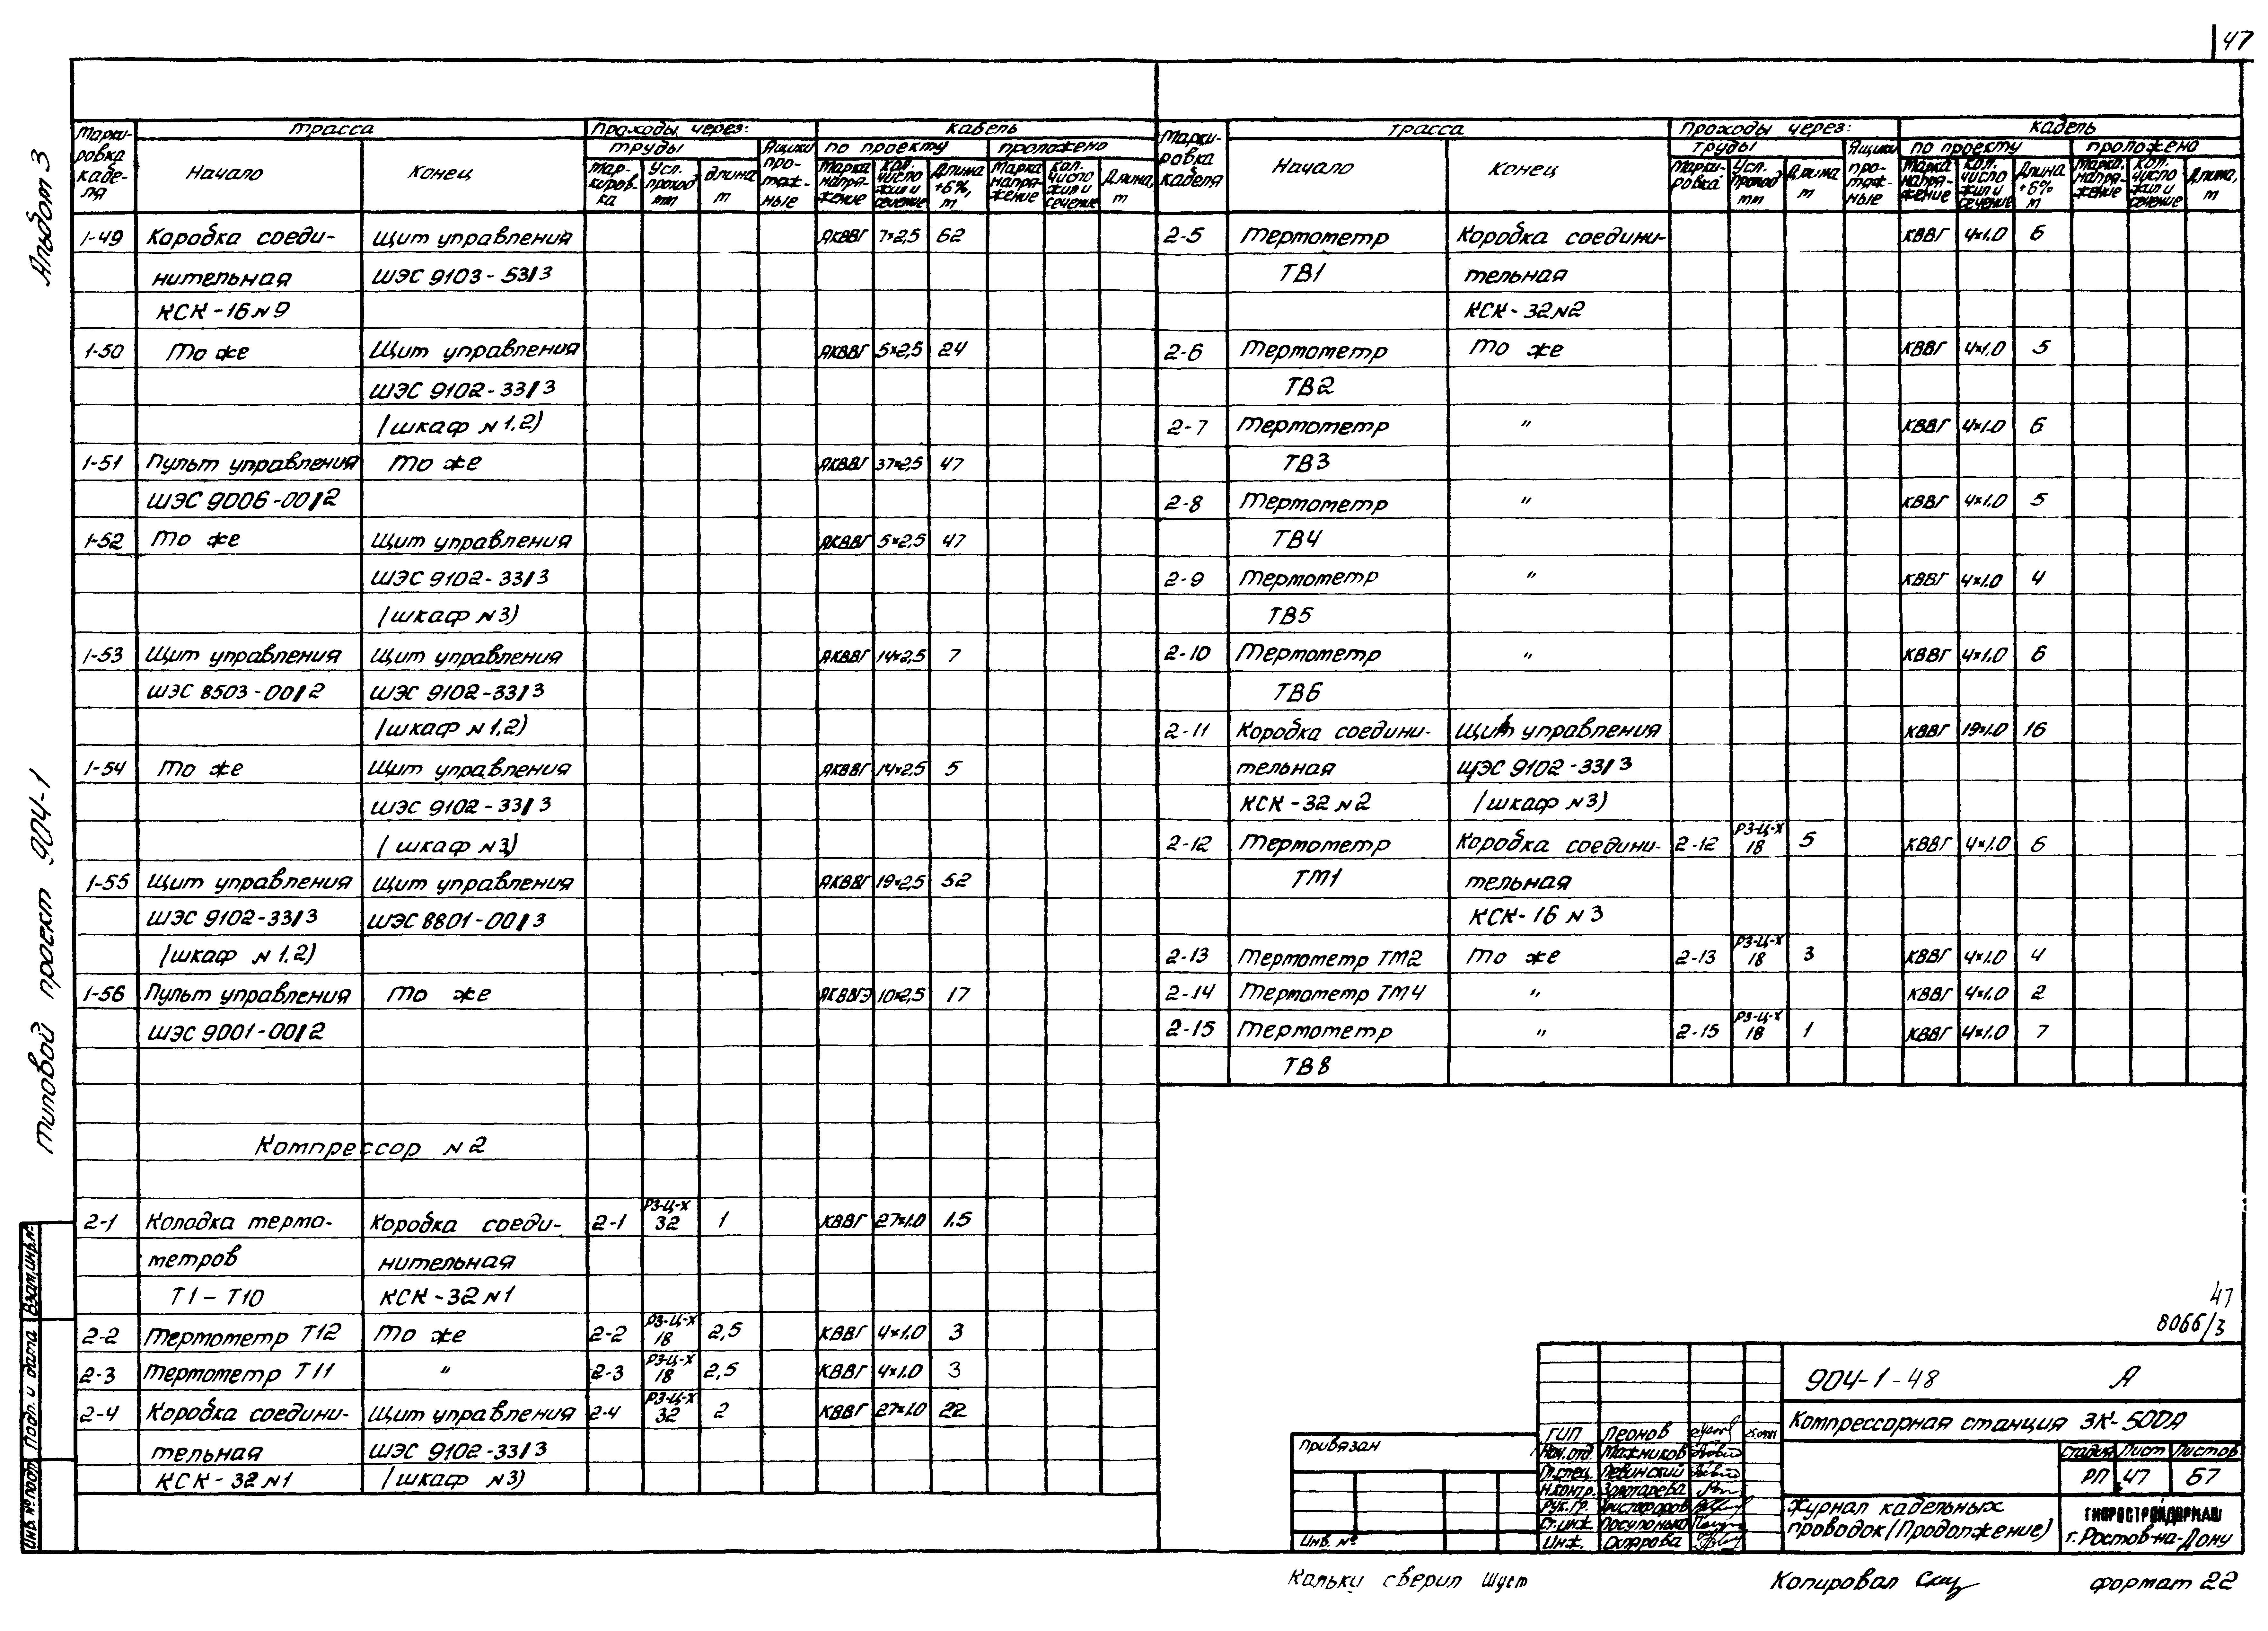 47
Альбом 3
типовой проект 904-1
Марки-ровка кабе-ля | трасса | Проходы через: | кабель
Начало | Конец | трубы | Ящики про-тяж-ные | по проекту | проложено
Мар-киров-ка | Усл. проход мм | Длина м | Марка напря-жение | Кол. число жил и сечение | Длина +6%, м | Марка напря-жение | Кол. число жил и сечение | Длина, м
1-49 Коробка соеди- Щит управления АКВВГ 7×2,5 62
нительная ШЭС 9103-53/3
КСК-16 №9
1-50 То же Щит управления АКВВГ 5×2,5 24
ШЭС 9102-33/3
(шкаф №1,2)
1-51 Пульт управления То же АКВВГ 37×2,5 47
ШЭС 9006-00/2
1-52 То же Щит управления АКВВГ 5×2,5 47
ШЭС 9102-33/3
(шкаф №3)
1-53 Щит управления Щит управления АКВВГ 14×2,5 7
ШЭС 8503-00/2 ШЭС 9102-33/3
(шкаф №1,2)
1-54 То же Щит управления АКВВГ 14×2,5 5
ШЭС 9102-33/3
(шкаф №3)
1-55 Щит управления Щит управления АКВВГ 19×2,5 52
ШЭС 9102-33/3 ШЭС 8801-00/3
(шкаф №1,2)
1-56 Пульт управления То же АКВВГЭ 10×2,5 17
ШЭС 9001-00/2
Компрессор №2
2-1 Колодка термо- Коробка соеди- 2-1 РЗ-Ц-Х 32 1 КВВГ 27×1.0 1.5
метров нительная
Т1-Т10 КСК-32 №1
2-2 Термометр Т12 То же 2-2 РЗ-Ц-Х 18 2,5 КВВГ 4×1.0 3
2-3 Термометр Т11 " 2-3 РЗ-Ц-Х 18 2,5 КВВГ 4×1.0 3
2-4 Коробка соедини- Щит управления 2-4 РЗ-Ц-Х 32 2 КВВГ 27×1.0 22
тельная ШЭС 9102-33/3
КСК-32 №1 (шкаф №3)
Марки-ровка кабеля | трасса | Проходы через: | кабель
Начало | Конец | трубы | Ящики про-тяж-ные | по проекту | проложено
Марки-ровка | Усл. проход мм | Длина м | Марка напря-жение | Кол. число жил и сечение | Длина +6% м | Марка, напря-жение | Кол. число жил и сечение | Длина, м
2-5 Термометр Коробка соедини- КВВГ 4×1.0 6
ТВ1 тельная
КСК-32 №2
2-6 Термометр То же КВВГ 4×1.0 5
ТВ2
2-7 Термометр " КВВГ 4×1.0 6
ТВ3
2-8 Термометр " КВВГ 4×1.0 5
ТВ4
2-9 Термометр " КВВГ 4×1.0 4
ТВ5
2-10 Термометр " КВВГ 4×1.0 6
ТВ6
2-11 Коробка соедини- Щит управления КВВГ 19×1.0 16
тельная ШЭС 9102-33/3
КСК-32 №2 (шкаф №3)
2-12 Термометр Коробка соедини- 2-12 РЗ-Ц-Х 18 5 КВВГ 4×1.0 6
ТМ1 тельная
КСК-16 №3
2-13 Термометр ТМ2 То же 2-13 РЗ-Ц-Х 18 3 КВВГ 4×1.0 4
2-14 Термометр ТМ4 " КВВГ 4×1.0 2
2-15 Термометр " 2-15 РЗ-Ц-Х 18 1 КВВГ 4×1.0 7
ТВ8
47
8066/3
904-1-48 А
Компрессорная станция 3К-500А
Стадия Лист Листов
РП 47 67
Журнал кабельных
проводок (Продолжение)
ГИПРОСТРОЙДОРМАШ
г. Ростов-на-Дону
ГИП Леонов
Нач.отд. Мажников
Гл.спец. Левинский
Н.контр. Золотарева
Рук.гр. Христофоров
Ст.инж.
Инж. Склярова
Привязан
Инв. №
Инв.№ подл. Подп. и дата Взам.инв.№
Кальку сверил Шуст
Копировал
формат 22